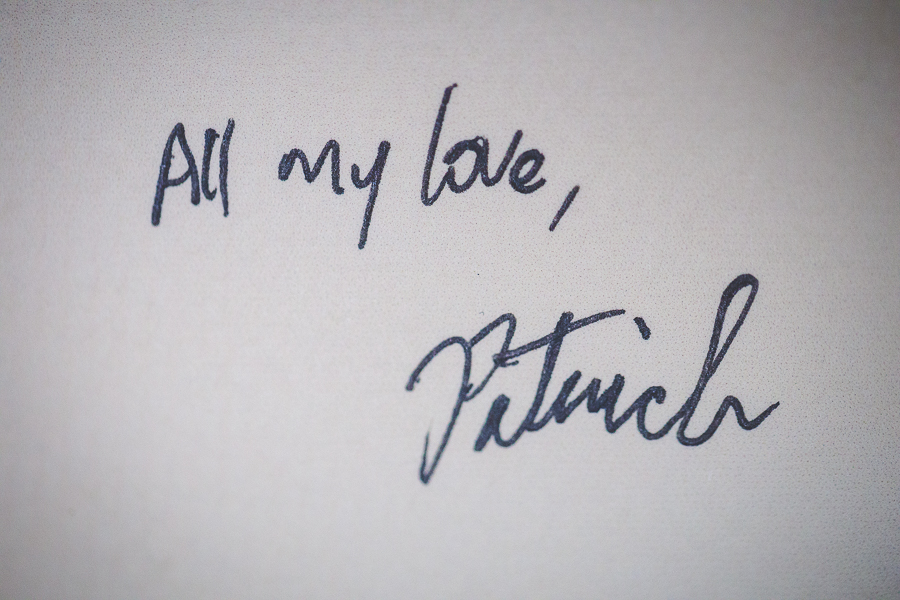 All my love,
Patrick